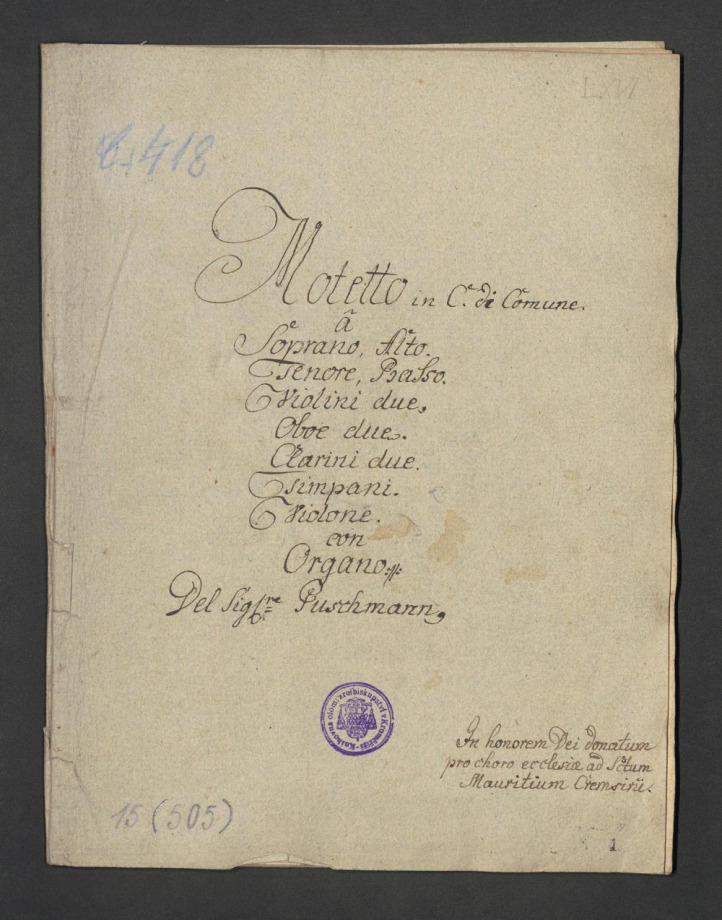 LXVI
C. 418
Motetto in C. di Comune.
â
Soprano, Alto.
Tenore, Basso.
Violini due,
Oboe due.
Clarini due.
Tsimpani.
Violone.
con
Organo
Del Sigre Puschmann,
Knihovna olom. arcibiskupství v Kroměříži
In honorem Dei donatum
pro choro ecclesiæ ad Sctum
Mauritium Cremsirii.
15 (505)
1